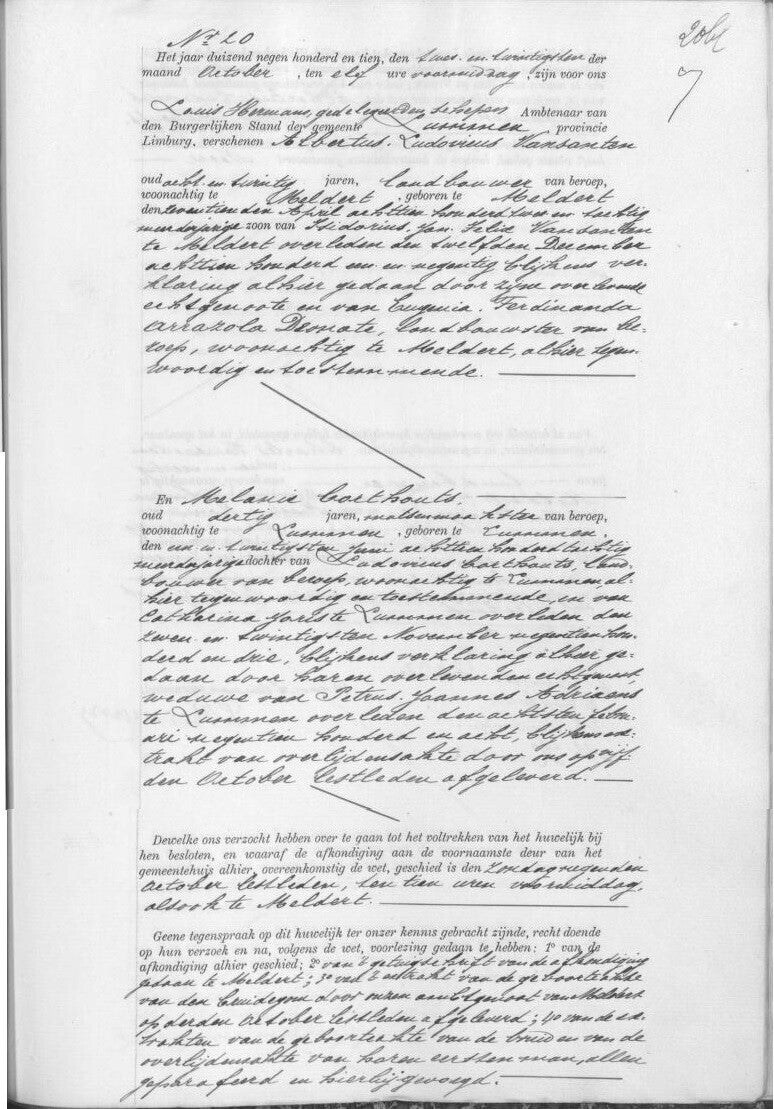 Nr 20
Het jaar duizend negen honderd en tien, den twee en twintigsten der
maand October, ten elf ure voormiddag, zijn voor ons
Louis Hermans, gedelegeerden schepen Ambtenaar van
den Burgerlijken Stand der gemeente Lummen provincie
Limburg, verschenen Albertus Ludovicus Vansanten
oud acht en twintig jaren, landbouwer van beroep,
woonachtig te Meldert, geboren te Meldert
den zeventienden April achttien honderd twee en tachtig
meerderjarige zoon van Isidorius Jan Felix Vansanten
te Meldert overleden den twelfden December
achttien honderd een en negentig blijkens ver-
klaring alhier gedaan door zijne overlevende
echtgenoote en van Eugenia Ferdinanda
Arrazola Deonate, landbouwster van be-
roep, woonachtig te Meldert, alhier tegen-
woordig en toestemmende.
En Melanie Corthouts.
oud dertig jaren, van beroep,
woonachtig te Lummen, geboren te Lummen,
den een en twintigsten Juni achttien honderd tachtig
meerderjarige dochter van Ludovicus Corthouts, land-
bouwer van beroep, woonachtig te Lummen al-
hier tegenwoordig en toestemmende, en van
Catharina Joris te Lummen overleden den
zeven en twintigsten November negentien hon-
derd en drie, blijkens verklaring alhier ge-
daan door haren overlevenden echtgenoot,
weduwe van Petrus Joannes Adriaens
te Lummen overleden den achtsten febru-
ari negentien honderd en acht, blijkens ex-
trakt van overlijdensakte door ons op vijf
den October lestleden afgeleverd.
Dewelke ons verzocht hebben over te gaan tot het voltrekken van het huwelijk bij
hen besloten, en waaraf de afkondiging aan de voornaamste deur van het
gemeentehuis alhier, overeenkomstig de wet, geschied is den Zondag negenden
October lestleden, ten tien uren voormiddag,
alsook te Meldert.
Geene tegenspraak op dit huwelijk ter onzer kennis gebracht zijnde, recht doende
op hun verzoek en na, volgens de wet, voorlezing gedagn te hebben: 1° van de
afkondiging alhier geschied; 2° van 't getuigschrift van de afkondiging
gedaan te Meldert; 3° van 't extrakt van de geboorteakte
van den bruidegom door onzen ambtgenoot van Meldert
op derden October lestleden afgeleverd; 4° van de ex-
trakten van de geboorteakte van de bruid en van de
overlijdensakte van haren eersten man, allen
geparafeerd en hierbijgevoegd.